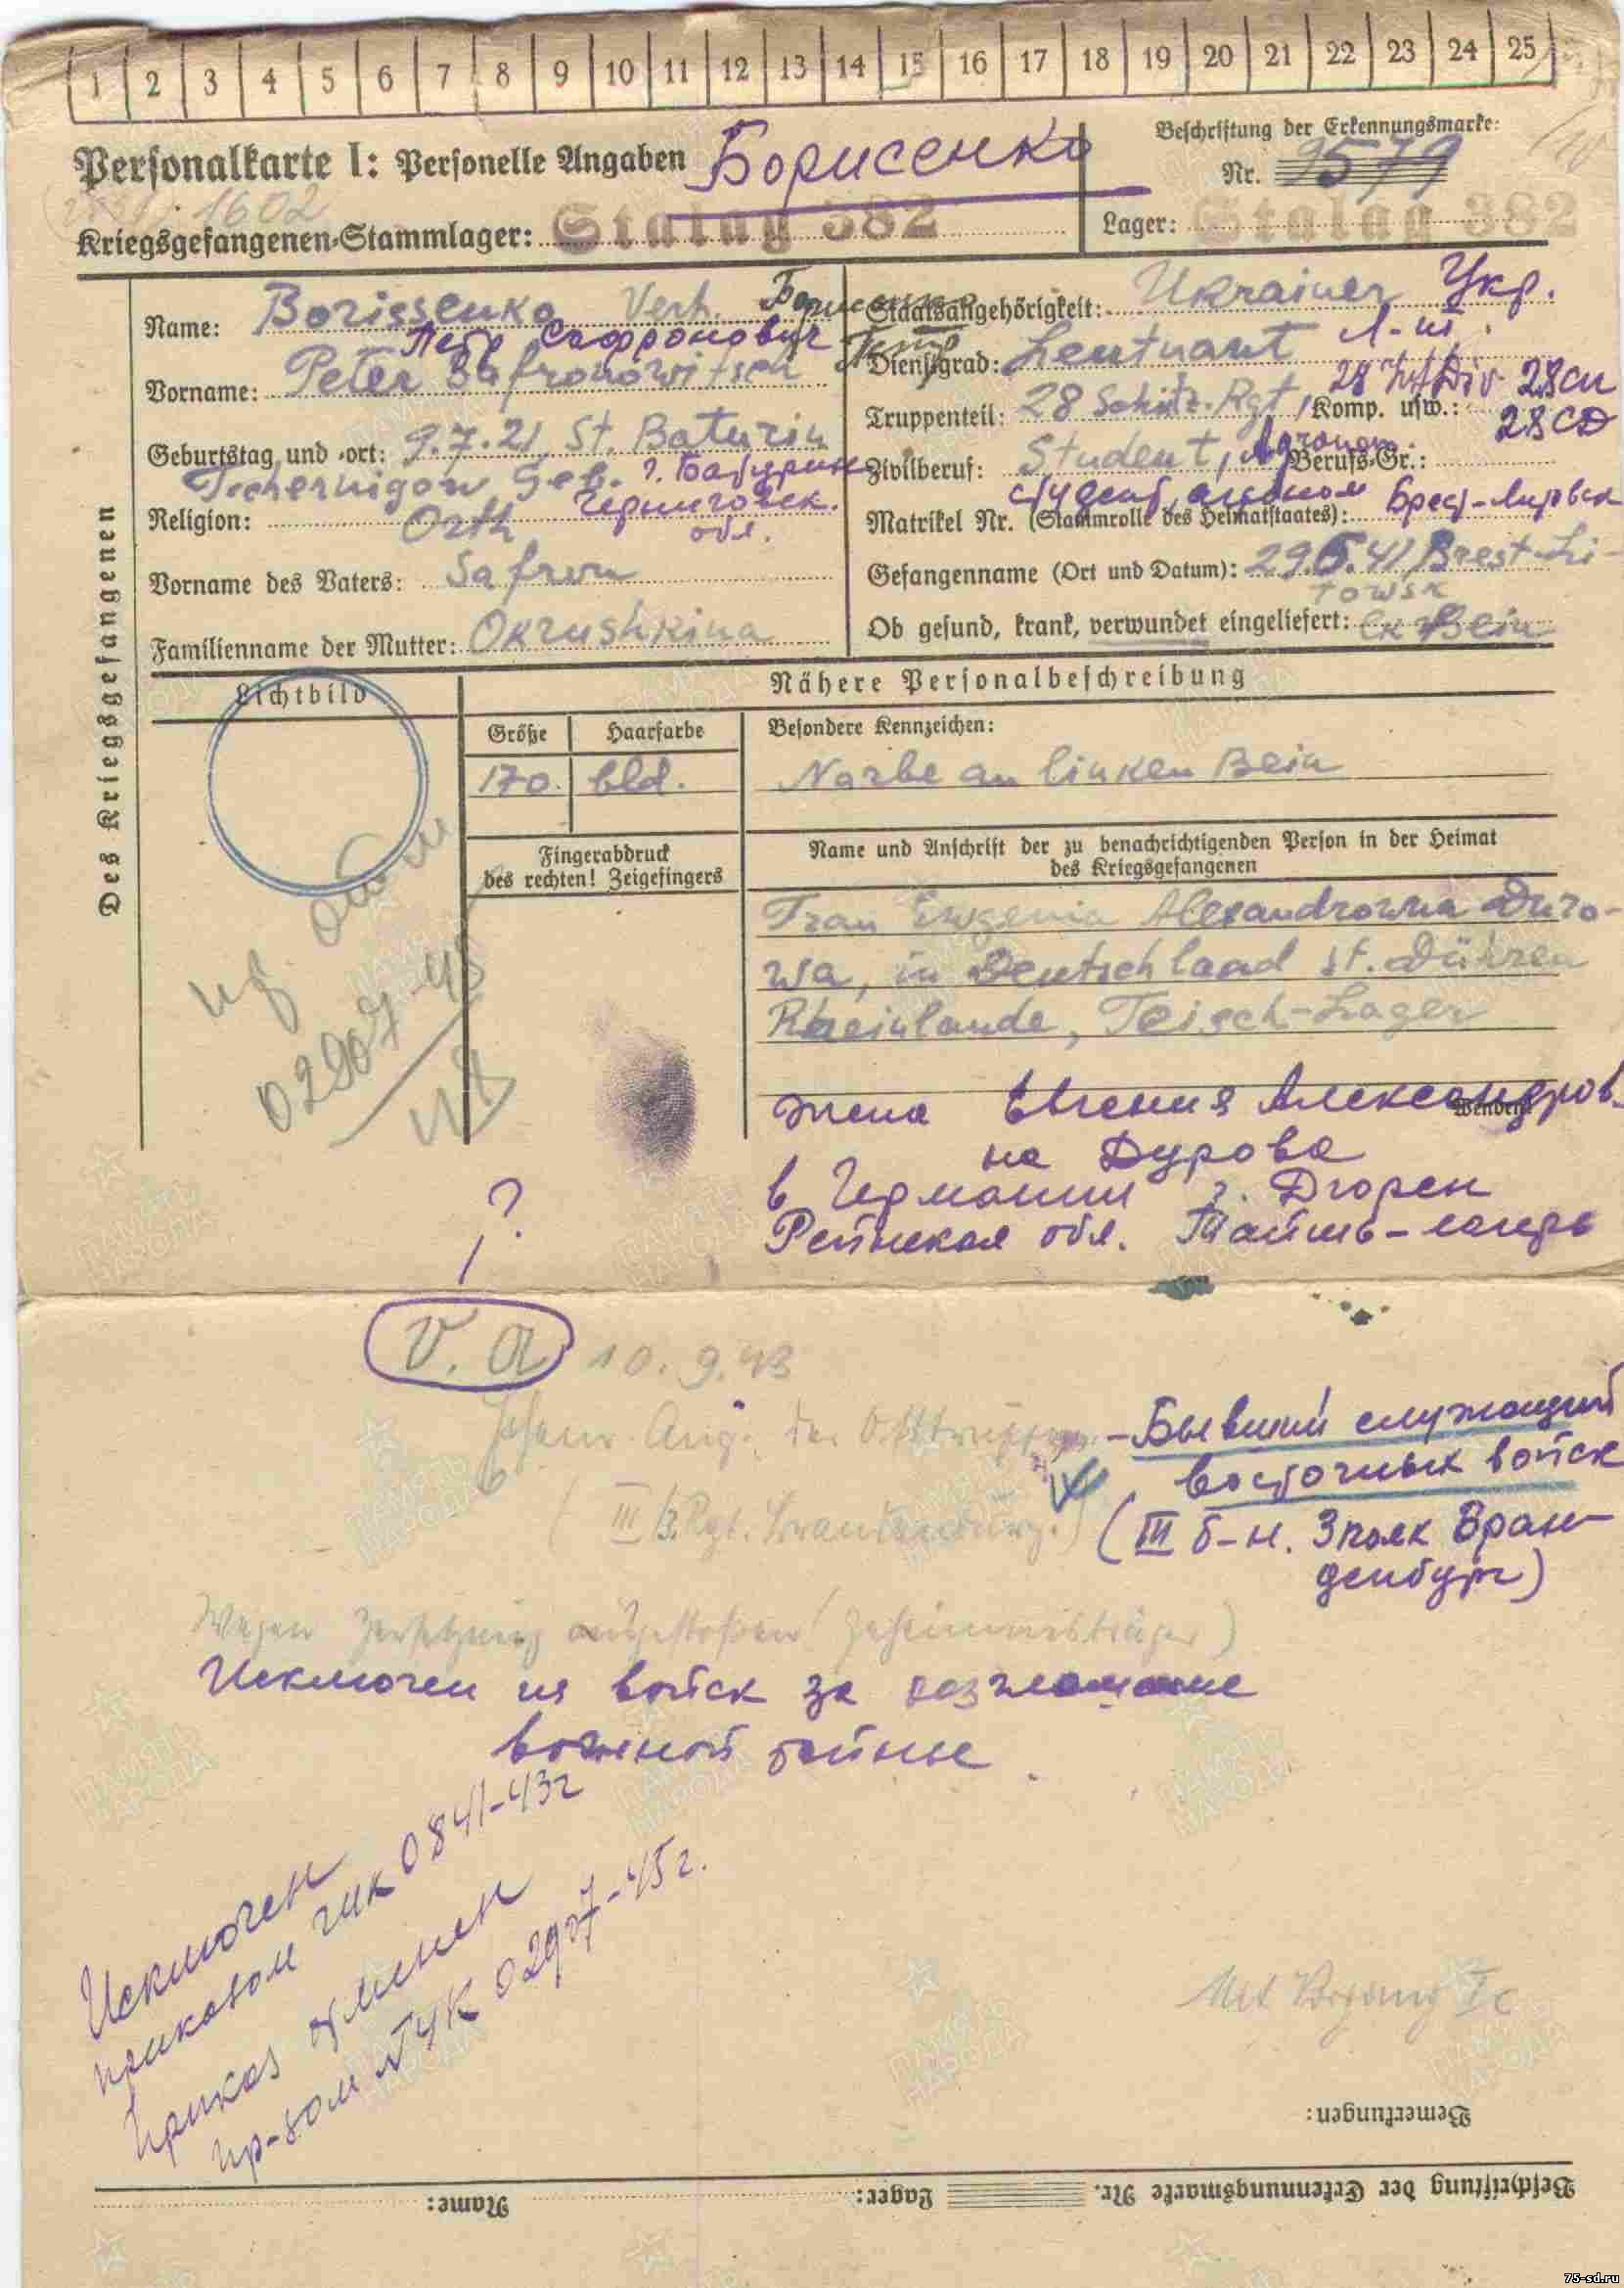 1 2 3 4 5 6 7 8 9 10 11 12 13 14 15 16 17 18 19 20 21 22 23 24 25
Personalkarte I: Personelle Angaben
Борисенко
Beschriftung der Erkennungsmarke:
Nr. 9579
1602
Kriegsgefangenen-Stammlager: Stalag 382
Lager: Stalag 382
Des Kriegsgefangenen
Name: Borissenko Verh. Борисенко
Петр Сафронович Петр
Vorname: Peter Safronowitsch
Geburtstag und -ort: 9.7.21, St. Baturin
Tschernigow Geb. г. Батурин
Religion: Orth Черниговск.
обл.
Vorname des Vaters: Safron
Familienname der Mutter: Okrushkina
Staatsangehörigkeit: Ukrainer Укр.
Dienstgrad: Leutnant л-т.
28 Inf Div 28 сп
Truppenteil: 28 Schütz. Rgt, Komp. usw.: 28 СД
Zivilberuf: Student, Agronom Berufs-Gr.:
студент, агроном Брест-Литовск
Matrikel Nr. (Stammrolle des Heimatstaates):
Gefangenname (Ort und Datum): 29.6.41, Brest-Li-
towsk
Ob gesund, krank, verwundet eingeliefert: Bein
Lichtbild
Nähere Personalbeschreibung
Größe Haarfarbe
170. bld.
Besondere Kennzeichen:
Narbe an linken Bein
Fingerabdruck
des rechten! Zeigefingers
Name und Anschrift der zu benachrichtigenden Person in der Heimat
des Kriegsgefangenen
Frau Ewgenia Alexandrowna Duro-
wa, in Deutschland st. Dühren
Rheinlande, Teisch-Lager
Wenden!
02907-45
жена Евгения Александров-
на Дурова
в Германии г. Дюрен
Рейнская обл. Тайшь-лагерь
?
V. a 10.9.43
-Бывший служащий
восточных войск
(III б-н. 3 полк Бран-
денбург)
(III/3. Rgt. Brandenburg.)
Wegen Zersetzung ausgestoßen (Geheimnisträger)
Исключен из войск за разглашение
военной тайны.
Исключен
приказом ГУК 0841-43г
Приказ отменен
пр-зом ГУК 02907-45г.
Mit Vorgang Ic
Bemerkungen:
Beschriftung der Erkennungsmarke Nr.
Lager:
Name:
ПАМЯТЬ
НАРОДА
75-sd.ru